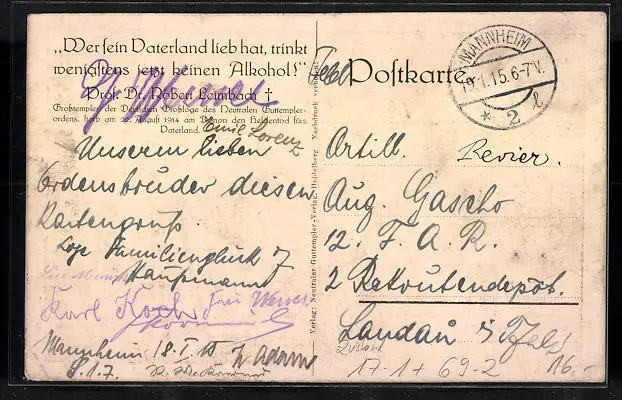 „Wer sein Vaterland lieb hat, trinkt
wenigstens jetzt keinen Alkohol!“
Prof. Dr. Robert Lembach †
Großtempler der Deutschen Großloge des Neutralen Guttempler-
ordens, starb am 22. August 1914 am Donon den Heldentod fürs
Vaterland.
Emil Lorenz
Unserm lieben
Ordensbruder diesen
Kartengruß.
Loge Familienglück 7
Kaupmann
Karl Koch
Mannheim 18.I.15
S.1.7.
Verlag: Neutraler Guttempler-Verlag, Heidelberg Nachdruck verboten!
Postkarte
MANNHEIM
19.1.15.6-7V.
* 2 l
Artill.
Revier.
Aug. Gascho
12. F. A. R.
2 Rekrutendepot.
Landau i/Pfalz
17-1+ 69-2
16.-